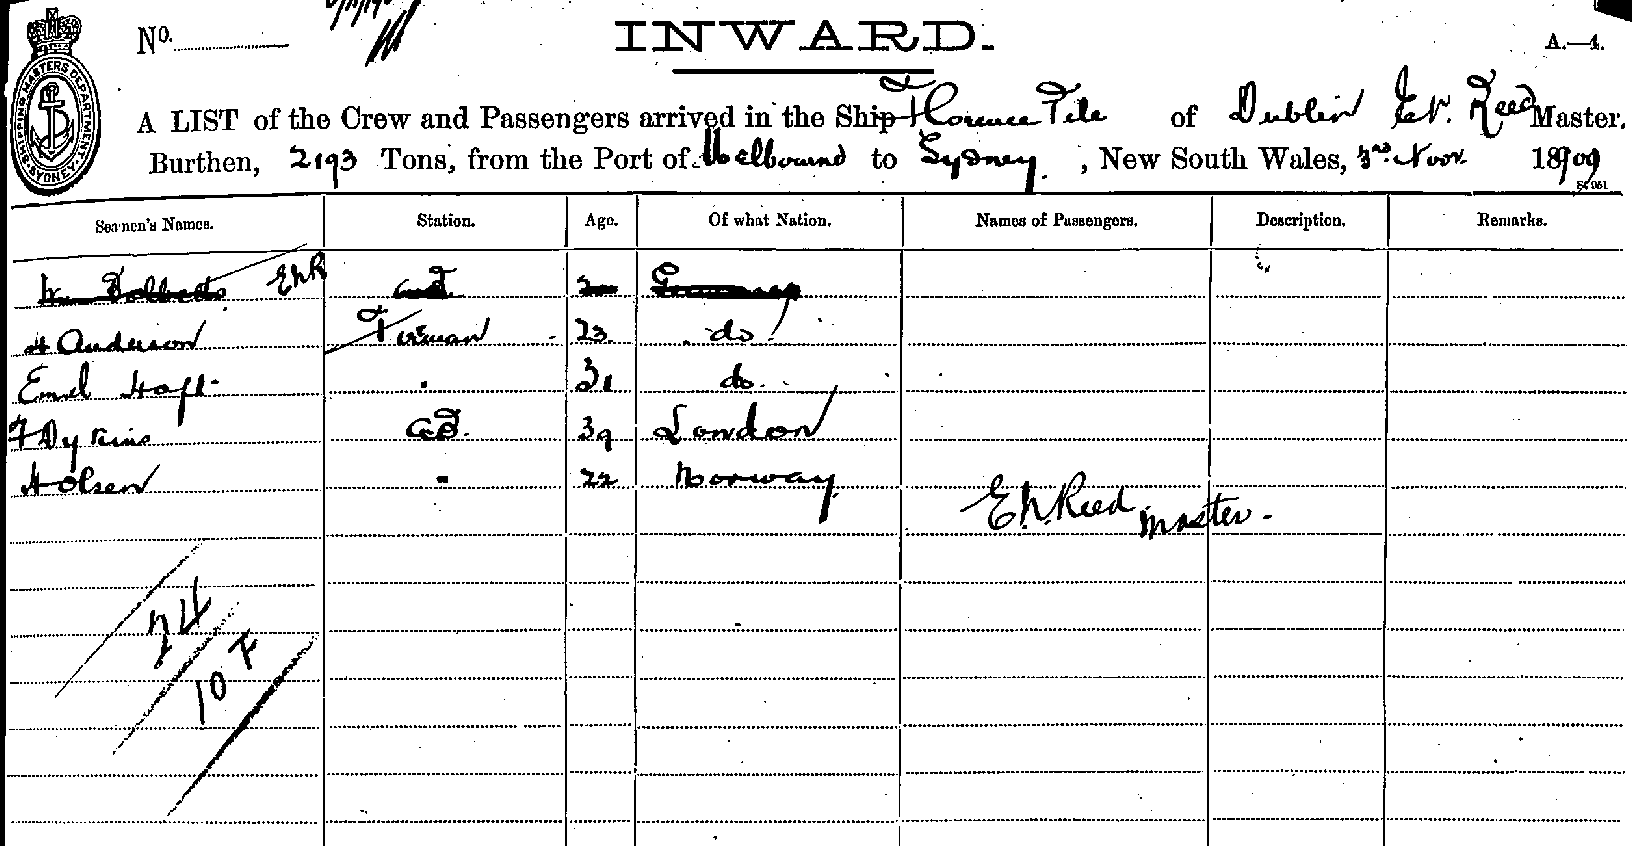 No.
INWARD.
A.—4.
SHIPPING MASTERS DEPARTMENT SYDNEY
A LIST of the Crew and Passengers arrived in the Ship Florence Pile of Dublin E N. Reed Master.
Burthen, 2193 Tons, from the Port of Melbourne to Sydney, New South Wales, 3rd Novr 1909
Seamen's Names. Station. Age. Of what Nation. Names of Passengers. Description. Remarks.
ENR AB Germany
H Anderson Fireman 23 do
Emil Hoft " 31 do
F Dykins AB. 39 London
H Olsen " 22 Norway
E.N. Reed Master.
24
10 F